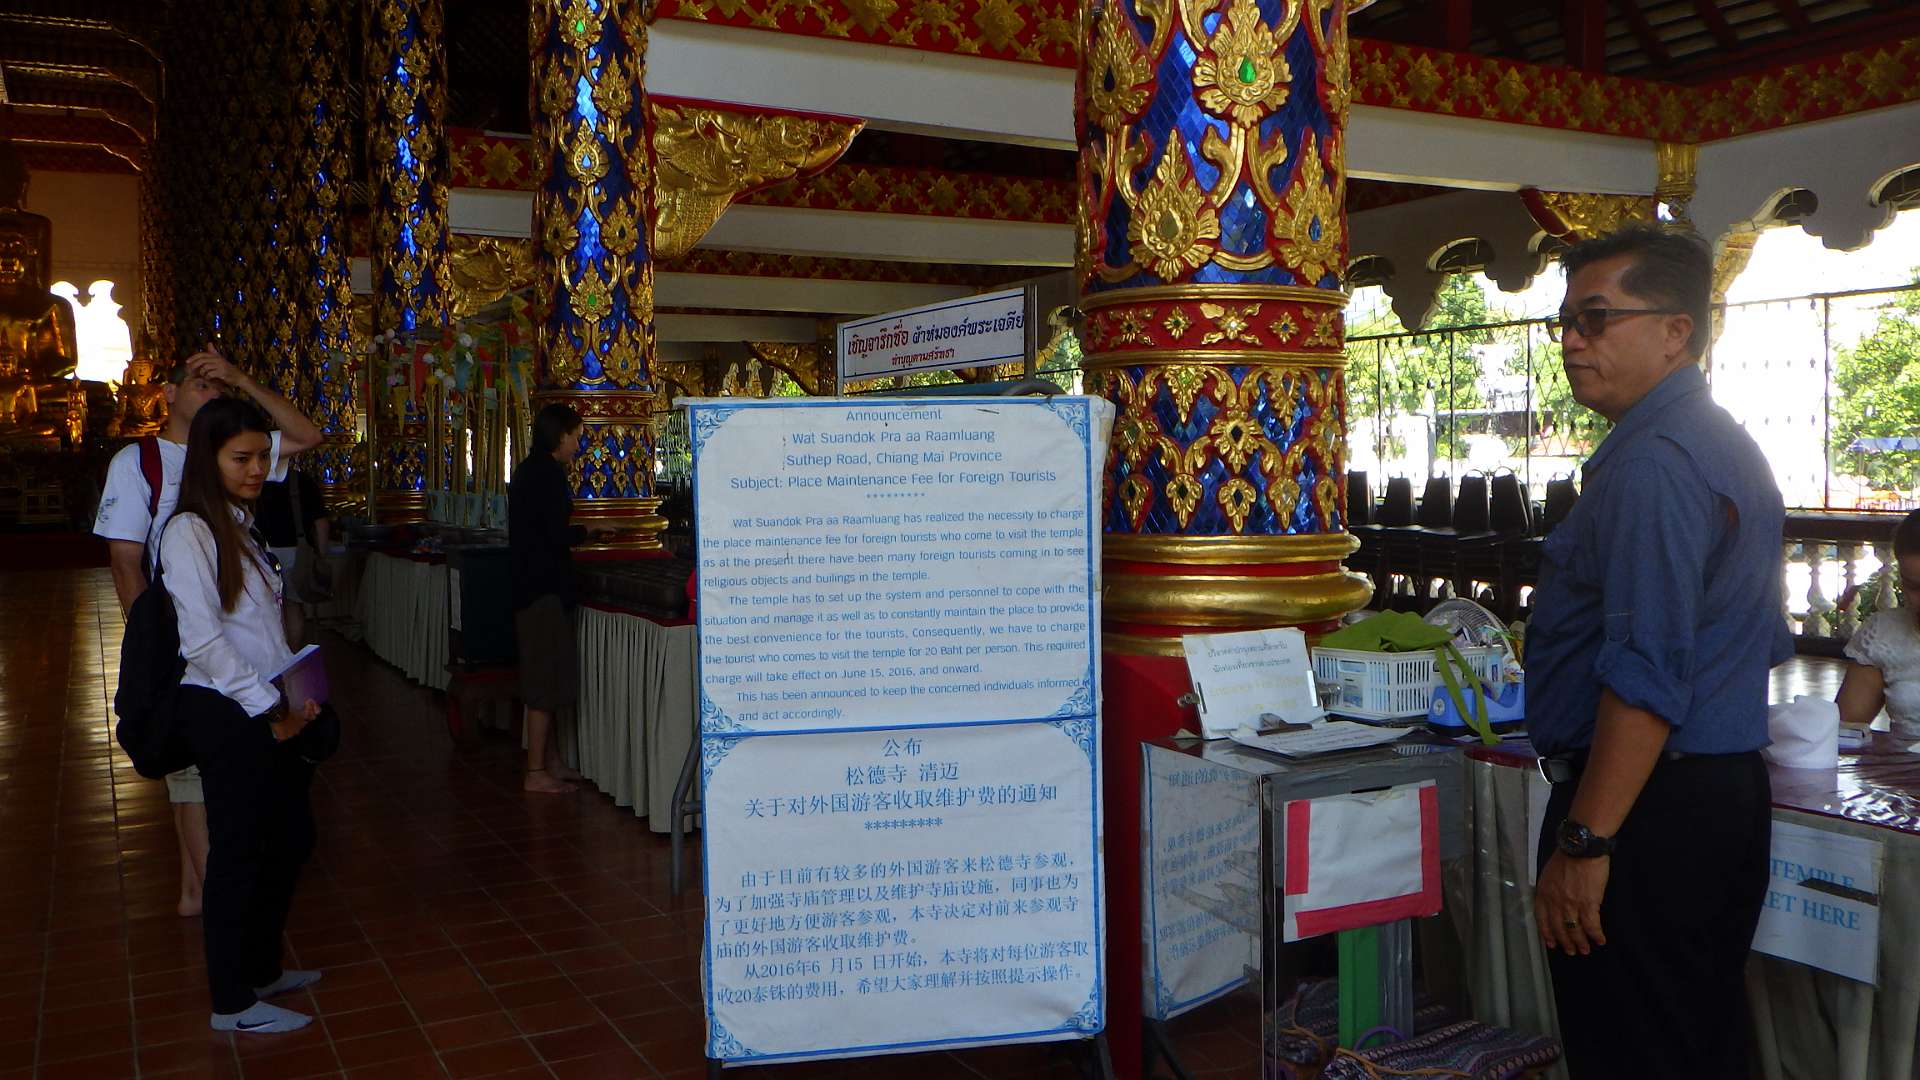 เชิญจารึกชื่อ ผ้าห่มองค์พระเจดีย์
ทำบุญตามศรัทธา
Announcement
Wat Suandok Pra aa Raamluang
Suthep Road, Chiang Mai Province
Subject: Place Maintenance Fee for Foreign Tourists
*********
Wat Suandok Pra aa Raamluang has realized the necessity to charge
the place maintenance fee for foreign tourists who come to visit the temple
as at the present there have been many foreign tourists coming in to see
religious objects and builings in the temple.
The temple has to set up the system and personnel to cope with the
situation and manage it as well as to constantly maintain the place to provide
the best convenience for the tourists, Consequently, we have to charge
the tourist who comes to visit the temple for 20 Baht per person. This required
charge will take effect on June 15, 2016, and onward.
This has been announced to keep the concerned individuals informed
and act accordingly.
公布
松德寺 清迈
关于对外国游客收取维护费的通知
*********
由于目前有较多的外国游客来松德寺参观，
为了加强寺庙管理以及维护寺庙设施，同事也为
了更好地方便游客参观，本寺决定对前来参观寺
庙的外国游客收取维护费。
从2016年6 月15 日开始，本寺将对每位游客取
收20泰铢的费用，希望大家理解并按照提示操作。
TEMPLE
HERE